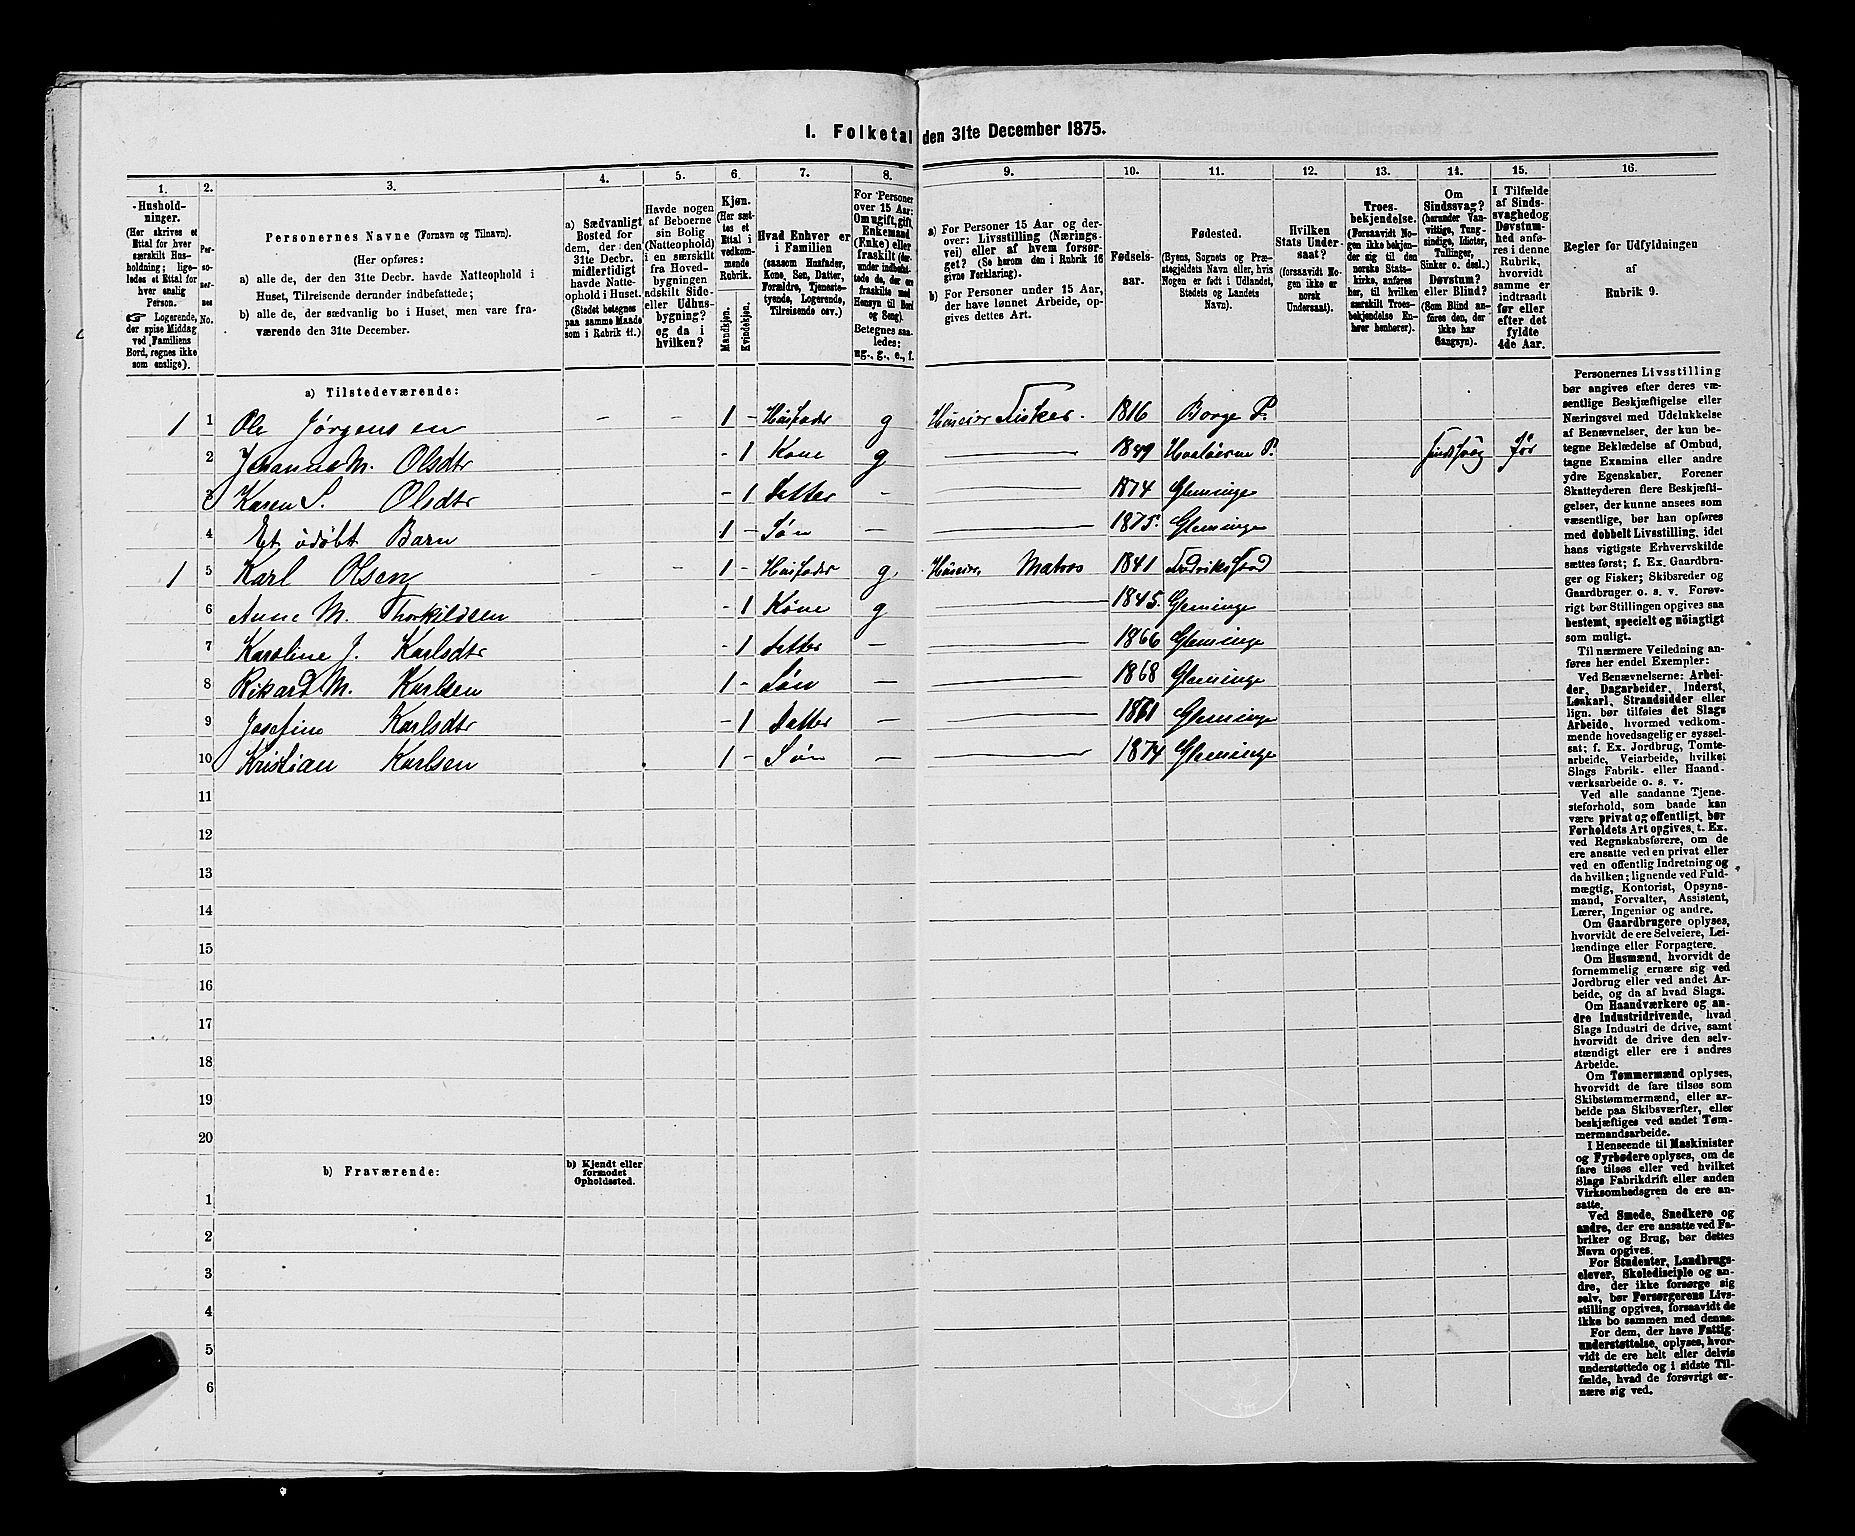 I. Folketal den 31te December 1875.
1.
Hushold-
ninger.
(Her skrives et
Ettal for hver
særskilt Hus-
holdning; lige-
ledes et Ettal for
hver enslig
Person.
☞ Logerende,
der spise Middag
ved Familiens
Bord, regnes ikke
som enslige).
2.
Per-
so-
ner-
nes
No.
3.
Personernes Navne (Fornavn og Tilnavn).
(Her opføres:
a) alle de, der den 31te Decbr. havde Natteophold i
Huset, Tilreisende derunder indbefattede;
b) alle de, der sædvanlig bo i Huset, men vare fra-
værende den 31te December.
4.
a) Sædvanligt
Bosted for
dem, der den
31te Decbr.
midlertidigt
havde Natte-
ophold i Huset.
(Stedet betegnes
paa samme Maade
som i Rubrik 11.)
5.
Havde nogen
af Beboerne
sin Bolig
(Natteophold)
i en særskilt
fra Hoved-
bygningen
adskilt Side-
eller Udhus-
bygning?
og da i
hvilken?
6.
Kjøn.
(Her sæt-
tes et
Ettal i
vedkom-
mende
Rubrik.
Mandkjøn.
Kvindekjøn.
7.
Hvad Enhver er
i Familien
(saasom Husfader,
Kone, Søn, Datter,
Forældre, Tjeneste-
tyende, Logerende,
Tilreisende osv.)
8.
For Personer
over 15 Aar:
Om ugift, gift,
Enkemand
(Enke) eller
fraskilt (der-
under indbefat-
tede de, der ere
fraskilte med
Hensyn til Bord
og Seng).
Betegnes saa-
ledes:
ug., g., e., f.
9.
a) For Personer 15 Aar og der-
over: Livsstilling (Nærings-
vei) eller af hvem forsør-
get? (Se herom den i Rubrik 16
givne Forklaring).
b) For Personer under 15 Aar,
der have lønnet Arbeide, op-
gives dettes Art.
10.
Fødsels-
aar.
11.
Fødested.
(Byens, Sognets og Præ-
stegjeldets Navn eller, hvis
Nogen er født i Udlandet,
Stedets og Landets
Navn).
12.
Hvilken
Stats Under-
saat?
(forsaavidt No-
gen ikke er
norsk
Undersaat).
13.
Troes-
bekjendelse.
(Forsaavidt No-
gen ikke bekjen-
der sig til den
norske Stats-
kirke, anføres
her, til hvilken
særskilt Troes-
bekjendelse En-
hver henhører).
14.
Om
Sindssvag?
(herunder Van-
vittige, Tung-
sindige, Idioter,
Tullinger,
Sinker o. desl.)
Døvstum?
eller Blind?
(Som Blind an-
føres den, der
ikke har
Gangsyn).
15.
I Tilfælde
af Sinds-
svaghed og
Døvstum-
hed anfø-
res i denne
Rubrik,
hvorvidt
samme er
indtraadt
før eller
efter det
fyldte
4de Aar.
16.
Regler for Udfyldningen
af
Rubrik 9.
a) Tilstedeværende:
1 1 Ole Jørgensen – – 1 – Husfader g Huseier Fisker. 1816 Borge P.
2 Johanne M. Olsdtr – 1 Kone g 1849 Hvaløerne P. Sindssvag før
3 Karen S. Olsdtr – 1 Datter – 1874 Glemminge
4 Et udøbt Barn 1 – Søn – 1875. Glemminge
1 5 Karl Olsen – – 1 – Husfader g. Huseier, Matros 1841
6 Anne M. Thorkildsen – 1 Kone g 1845. Glemminge
7 Karoline J. Karlsdtr – 1 Datter – 1866 Glemminge
8 Rikard M. Karlsen 1 – Søn – 1868 Glemminge
9 Josefine Karlsdtr – 1 Datter – Glemminge
10 Kristian Karlsen 1 – Søn – 1874 Glemminge
11
12
13
14
15
16
17
18
19
20
b) Fraværende:
b) Kjendt eller
formodet
Opholdssted.
1
2
3
4
5
6
Personernes Livsstilling
bør angives efter deres væ-
sentlige Beskjæftigelse eller
Næringsvei med Udelukkelse
af Benævnelser, der kun be-
tegne Beklædelse af Ombud,
tagne Examina eller andre
ydre Egenskaber. Forener
Skatteyderen flere Beskjæfti-
gelser, der kunne ansees som
væsentlige, bør han opføres
med dobbelt Livsstilling, idet
hans vigtigste Erhvervskilde
sættes først; f. Ex. Gaardbru-
ger og Fisker; Skibsreder og
Gaardbruger o. s. v. Forøv-
rigt bør Stillingen opgives saa
bestemt, specielt og nøiagtigt
som muligt.
Til nærmere Veiledning an-
føres her endel Exempler:
Ved Benævnelserne: Arbei-
der, Dagarbeider, Inderst,
Løskarl, Strandsidder eller
lign. bør tilføies det Slags
Arbeide, hvormed vedkom-
mende hovedsagelig er syssel-
sat; f. Ex. Jordbrug, Tomte-
arbeide, Veiarbeide, hvilket
Slags Fabrik- eller Haand-
værksarbeide o. s. v.
Ved alle saadanne Tjene-
steforhold, som baade kan
være privat og offentligt, bør
Forholdets Art opgives, t. Ex.
ved Regnskabsførere, om de
ere ansatte ved en privat eller
ved en offentlig Indretning og
da hvilken; lignende ved Fuld-
mægtig, Kontorist, Opsyns-
mand, Forvalter, Assistent,
Lærer, Ingeniør og andre.
Om Gaardbrugere oplyses,
hvorvidt de ere Selveiere, Lei-
lændinge eller Forpagtere.
Om Husmænd, hvorvidt de
fornemmelig ernære sig ved
Jordbrug eller ved andet Ar-
beide, og da af hvad Slags.
Om Haandværkere og an-
dre Industridrivende, hvad
Slags Industri de drive, samt
hvorvidt de drive den selv-
stændigt eller ere i andres
Arbeide.
Om Tømmermænd oplyses,
hvorvidt de fare tilsøs som
Skibstømmermænd, eller ar-
beide paa Skibsværfter, eller
beskjæftiges ved andet Tøm-
mermandsarbeide.
I Henseende til Maskinister
og Fyrbødere oplyses, om de
fare tilsøs eller ved hvilket
Slags Fabrikdrift eller anden
Virksomhedsgren de ere an-
satte.
Ved Smede, Snedkere og
andre, der ere ansatte ved Fa-
briker og Brug, bør dettes
Navn opgives.
For Studenter, Landbrugs-
elever, Skoledisciple og an-
dre, der ikke forsørge sig
selv, bør Forsørgerens Livs-
stilling opgives, forsaavidt de
ikke bo sammen med denne.
For dem, der have Fattig-
understøttelse, oplyses, hvor-
vidt de ere helt eller delvis
understøttede og i sidste Til-
fælde, hvad de forøvrigt er-
nære sig ved.